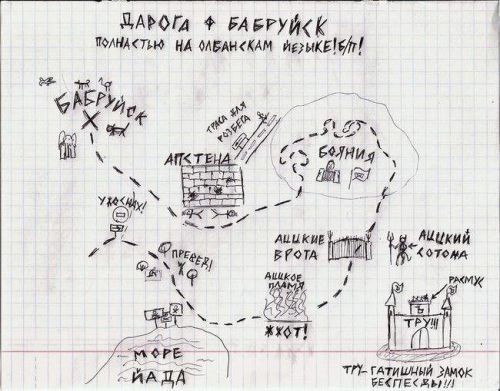 ДАРОГА Ф БАБРУЙСК
ПОЛНАСТЬЮ НА ОЛБАНСКАМ ЙЕЗЫКЕ! Б/П!
БАБРУЙСК
ТРАСА ДЛЯ
РОЗБЕГА
АПСТЕНА
БОЯНИЯ
УЖОСНАХ!
ПРЕВЕД!
АЦЦКИЕ
ВРОТА
АЦЦКИЙ
СОТОМА
АЦЦКОЕ
ПЛАМЯ
ЖЖОТ!
Ъ
ТРУ!!!
МОРЕ
ЙАДА
ТРУ-ГАТИШНЫЙ ЗАМОК
БЕСПЕСДЫ!!!